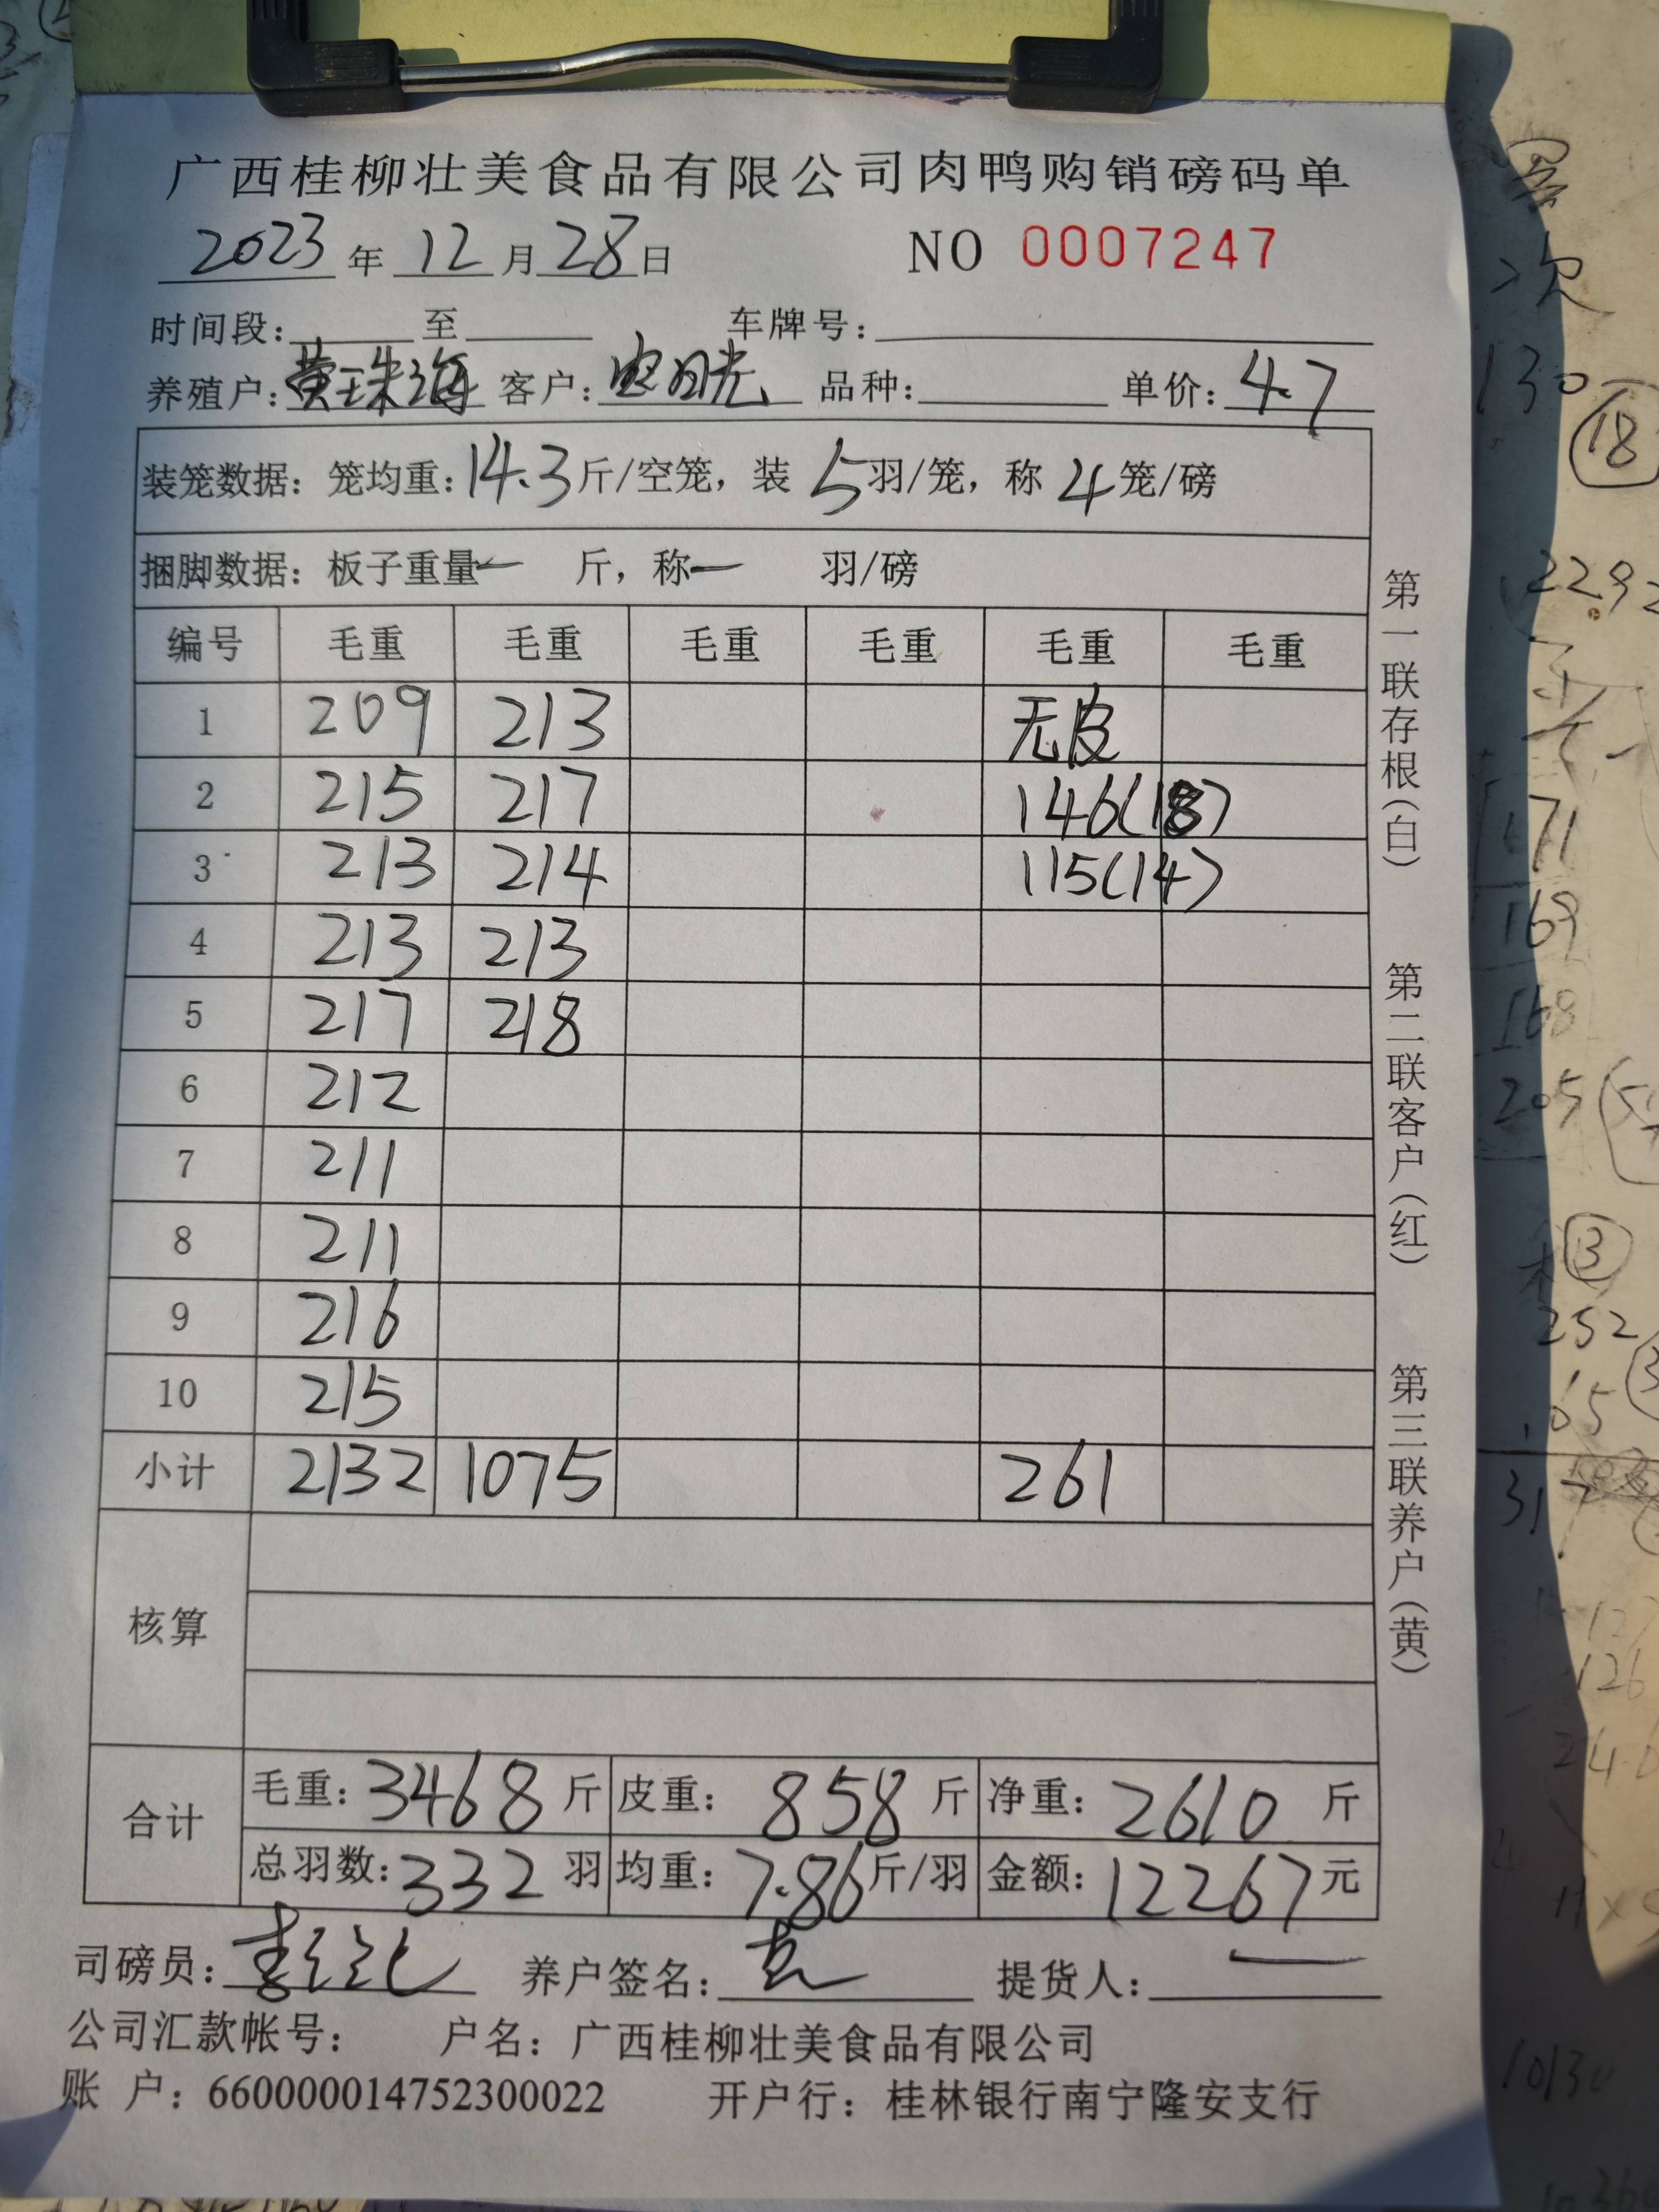 广西桂柳壮美食品有限公司肉鸭购销磅码单
2023年12月28日 NO 0007247
时间段: 至 车牌号:
养殖户:黄珠海 客户: 品种: 单价:4.7
装笼数据: 笼均重:14.3斤/空笼, 装5羽/笼, 称4笼/磅
捆脚数据: 板子重量一 斤, 称一 羽/磅
编号 毛重 毛重 毛重 毛重 毛重 毛重
1 209 213 无皮
2 215 217 146(18)
3 213 214 115(14)
4 213 213
5 217 218
6 212
7 211
8 211
9 216
10 215
小计 2132 1075 261
核算
合计 毛重:3468斤 皮重:858斤 净重:2610斤
总羽数:332羽 均重:7.86斤/羽 金额:12267元
司磅员: 养户签名: 提货人:一
公司汇款帐号: 户名: 广西桂柳壮美食品有限公司
账 户: 660000014752300022 开户行: 桂林银行南宁隆安支行
第一联存根(白)
第二联客户(红)
第三联养户(黄)
130
18
171
169
168
205
3
252